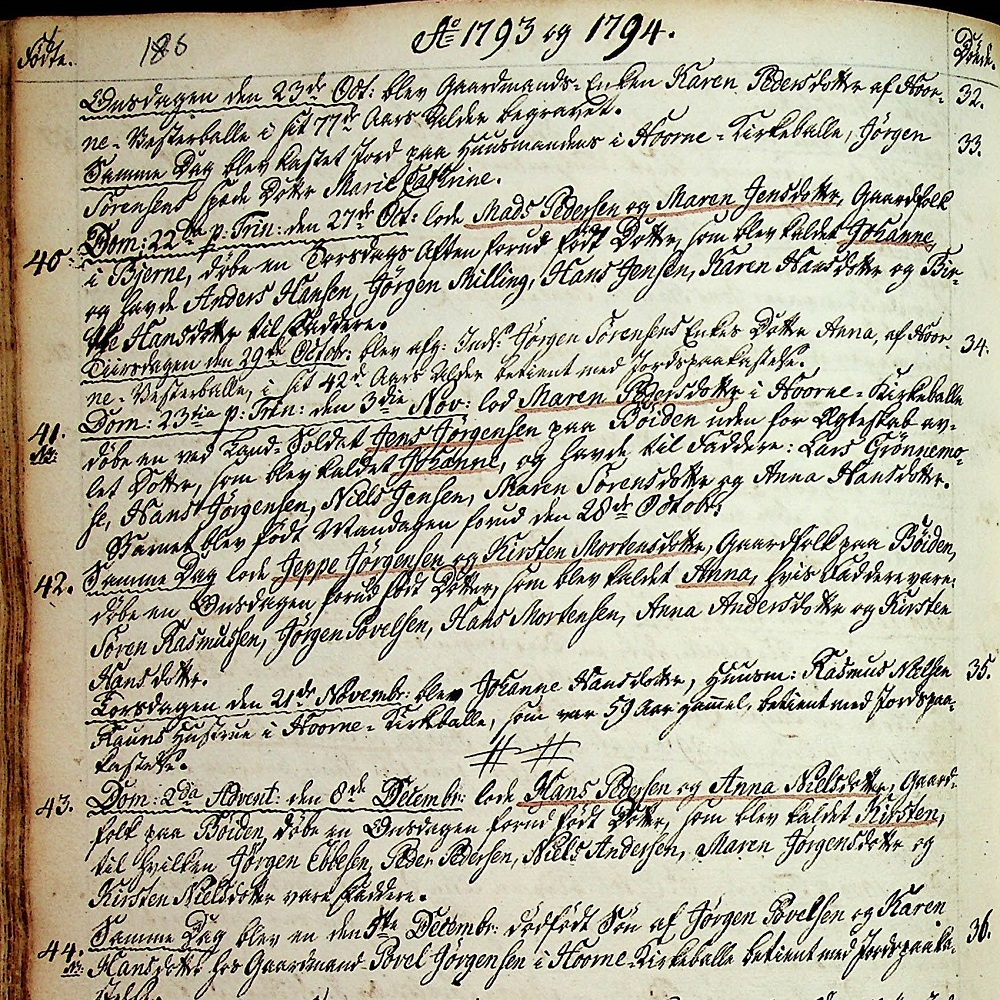 Födte.
186
Ao 1793 og 1794.
Döde.
Onsdagen den 23de Oct: blev Gaardmands-Enken Karen Pedersdotter af Hoor-
32.
ne-Vesterballe i sit 77de Aars Alder begravet.
Samme Dag blev kastet Jord paa Huusmandens i Hoorne-Kirkeballe, Jörgen
33.
Sörensens spæde Dotter Marie Cathrine.
40.
Dom: 22da p: Trin: den 27de Oct: lode Mads Pedersen og Maren Jensdotter, Gaardfolk
i Bjerne, döbe en Torsdags Aften forud födt Dotter, som blev kaldet Johanne,
og havde Anders Hansen, Jörgen Milling, Hans Jensen, Karen Hansdotter og Bir-
the Hansdotter til Faddere.
Tiirsdagen den 29de Octobr: blev afg: Inds: Jörgen Sörensens Enkes Dotter Anna, af Hoor-
34.
ne-Vesterballe, i sit 42de Aars Alder betient med Jordspaakastelse.
41.
Dom: 23tia p: Trin: den 3die Nov: lod Maren Pedersdotter i Hoorne-Kirkeballe
döbe en ved Land-Soldat Jens Jörgensen paa Böiden uden for Ægteskab av-
let Dotter, som blev kaldet Johanne, og havde til Faddere: Lars Grönnemo-
se, Hans Jörgensen, Niels Jensen, Maren Sörensdotter og Anna Hansdotter.
Barnet blev födt Mandagen forud den 28de Octobr:
42.
Samme Dag lode Jeppe Jörgensen og Kirsten Mortensdotter, Gaardfolk paa Böiden,
döbe en Onsdagen forud födt Dotter, som blev kaldet Anna, hvis Faddere vare:
Sören Rasmussen, Jörgen Povelsen, Hans Mortensen, Anna Andersdotter og Kirsten
Hansdotter.
Torsdagen den 21de Novembr: blev Johanne Hansdotter, Huusm: Rasmus Nielsen
35.
Hustrue i Hoorne-Kirkeballe, som var 59 Aar gammel, betient med Jordspaa-
kastelse.
43.
Dom: 2da Advent: den 8de Decembr: lode Hans Pedersen og Anna Nielsdotter, Gaard-
folk paa Böiden, döbe en Onsdagen forud födt Dotter, som blev kaldet Kirsten,
til hvilken Jörgen Ebbesen, Peder Pedersen, Niels Andersen, Maren Jörgensdotter og
Kirsten Nielsdotter vare Faddere.
44.
Samme Dag blev en den 5te Decembr: dödfödt Sön af Jörgen Povelsen og Karen
36.
Hansdotter hos Gaardmand Povel Jörgensen i Hoorne-Kirkeballe betient med Jordspaaka-
stelse.